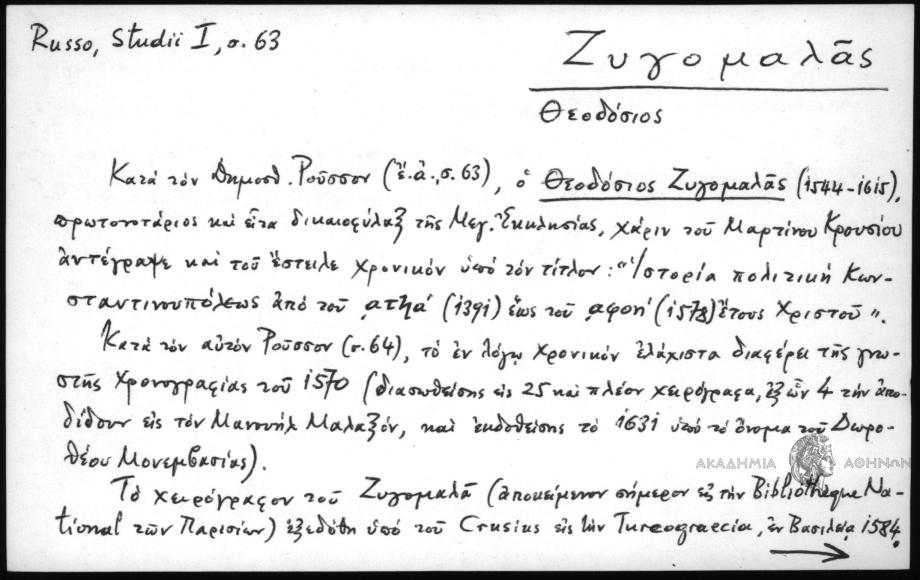 Russo, Studii I, σ. 63
Ζυγομαλᾶς
Θεοδόσιος
Κατά τόν Δημοσθ. Ροῦσσον (ἔ.ἀ., σ. 63), ὁ Θεοδόσιος Ζυγομαλᾶς (1544-1615),
πρωτονοτάριος καί εἶτα δικαιοφύλαξ τῆς Μεγ. Ἐκκλησίας, χάριν τοῦ Μαρτίνου Κρουσίου
ἀντέγραψε καί τοῦ ἔστειλε χρονικόν ὑπό τόν τίτλον: "Ἱστορία πολιτική Κων-
σταντινουπόλεως ἀπό τοῦ ͵ατηα' (1391) ἕως τοῦ ͵αφοη' (1578) ἔτους Χριστοῦ".
Κατά τόν αὐτόν Ροῦσσον (σ. 64), τό ἐν λόγῳ χρονικόν ἐλάχιστα διαφέρει τῆς γνω-
στῆς χρονογραφίας τοῦ 1570 (διασωθείσης εἰς 25 καί πλέον χειρόγραφα, ἐξ ὧν 4 τήν ἀπο-
δίδουν εἰς τόν Μανουήλ Μαλαξόν, καί ἐκδοθείσης τό 1631 ὑπό τό ὄνομα τοῦ Δωρο-
θέου Μονεμβασίας).
ΑΚΑΔΗΜΙΑ ΑΘΗΝΩΝ
Τό χειρόγραφον τοῦ Ζυγομαλᾶ (ἀποκείμενον σήμερον εἰς τήν Bibliothèque Na-
tional τῶν Παρισίων) ἐξεδόθη ὑπό τοῦ Crusius εἰς τήν Turcograecia, ἐν Βασιλείᾳ 1584.